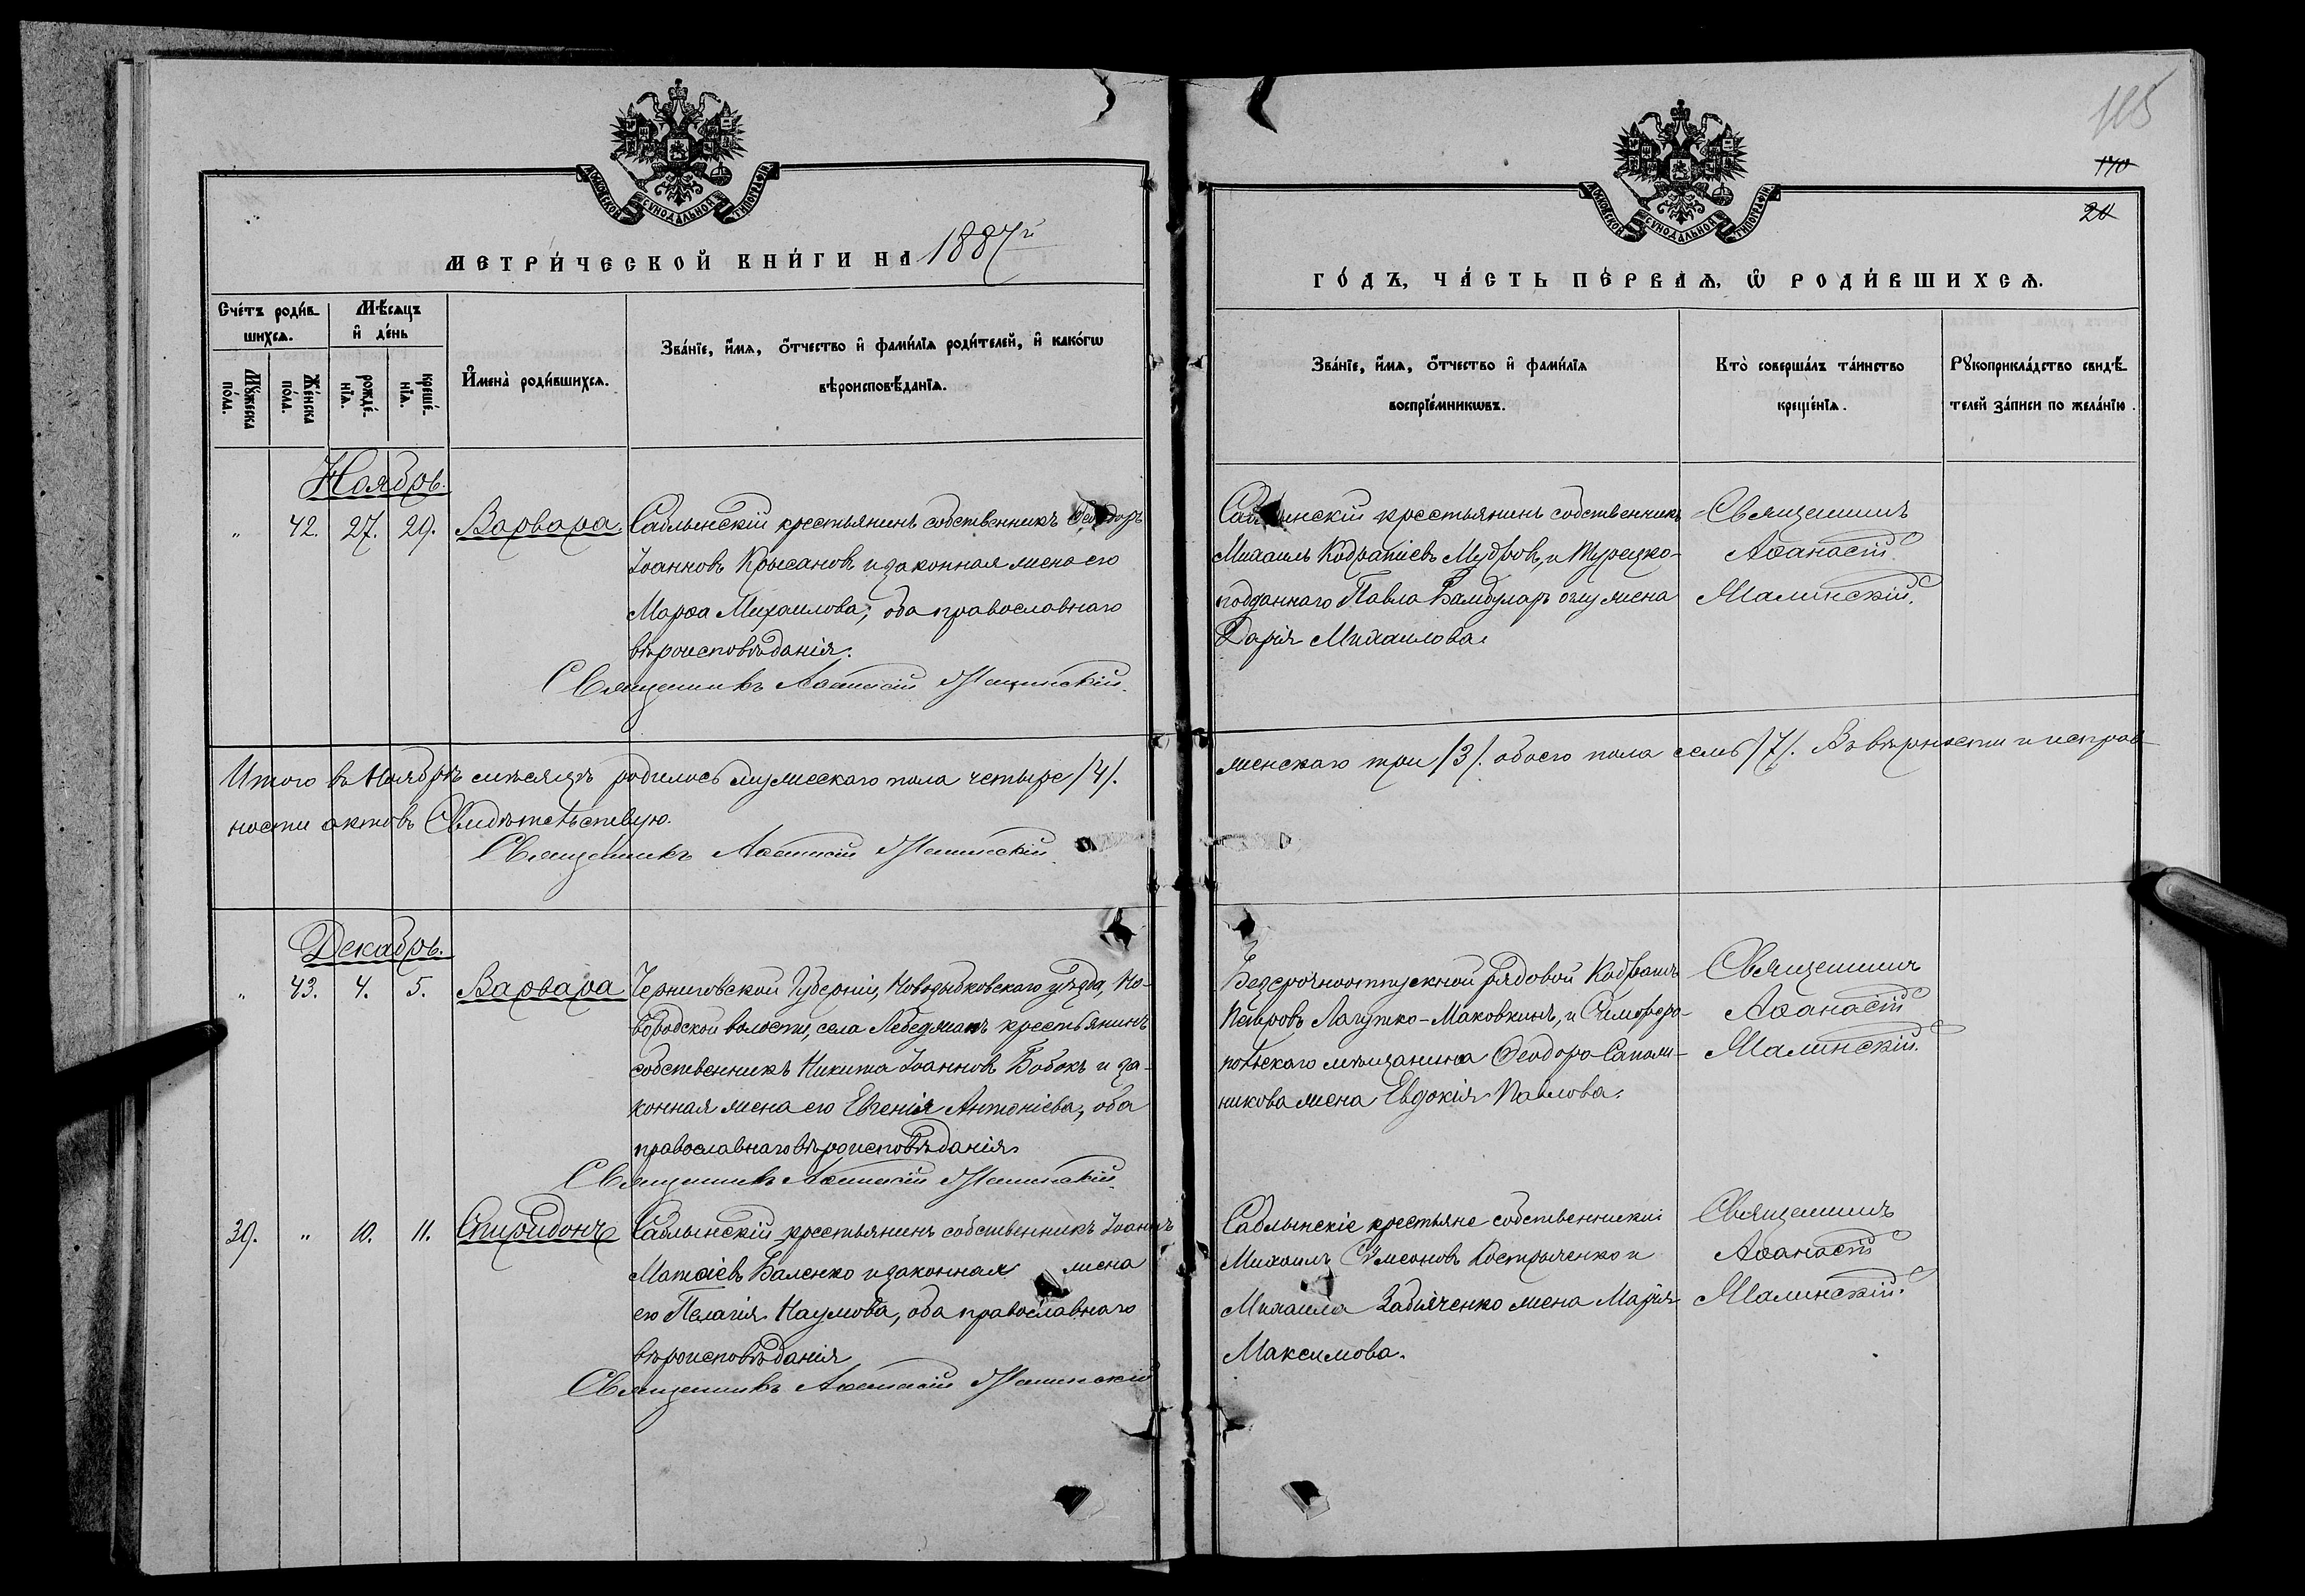 115
170
20
МОСКОВСКОЙ СѴНОДАЛЬНОЙ ТИПОГРАФІИ
МОСКОВСКОЙ СѴНОДАЛЬНОЙ ТИПОГРАФІИ
МЕТРИ́ЧЕСКОЙ КНИ́ГИ НА 1887й
ГО́ДЪ, ЧА́СТЬ ПЕ́РВАѦ, Ѽ РОДИ́ВШИХСѦ.
Сче́тъ роди́в-
шихсѧ.
Мꙋ́жеска по́ла.
Же́нска по́ла.
Мѣ́сѧцъ
и҆ де́нь
рожде́-
нїѧ.
креще́-
нїѧ.
И҆мена̀ роди́вшихсѧ.
Зва́нїе, и҆́мѧ, ѻ҆́тчество и҆ фами́лїѧ роди́телей, и҆ како́гѡ
вѣроисповѣ́данїѧ.
Зва́нїе, и҆́мѧ, ѻ҆́тчество и҆ фами́лїѧ
воспрїе́мникѡвъ.
Кто̀ соверша́лъ та́инство
креще́нїѧ.
Рꙋкоприкла́дство свидѣ́-
телей за́писи по жела́нїю.
Ноябрь.
" 42. 27. 29. Варвара
Саблынскій крестьянинъ собственникъ Ѳеодоръ
Іоанновъ Крысановъ и законная жена его
Марѳа Михаилова, оба православнаго
вѣроисповѣданія.
Священникъ Аѳанасій Малинскій.
Саблынскій крестьянинъ собственникъ
Михаилъ Кодратіевъ Мудровъ, и Турецко-
подданнаго Павла Бамбуларъ оглу жена
Дарія Михаилова.
Священникъ
Аѳанасій
Малинскій.
Итого въ Ноябрѣ мѣсяцѣ родилось мужескаго пола четыре /4/.
женскаго три /3/. обоего пола семь /7/. Въ вѣрности и исправ-
ности актовъ Свидѣтельствую.
Священникъ Аѳанасій Малинскій
Декабрь.
" 43. 4. 5. Варвара
Черниговской Губерніи, Новозыбковскаго уѣзда, Но-
воробской волости, села Лебедянь крестьянинъ
собственникъ Никита Іоанновъ Бобокъ и за-
конная жена его Евгенія Антоніева, оба
православнаго вѣроисповѣданія
Священникъ Аѳанасій Малинскій.
Безсрочноотпускной рядовой Кодратъ
Петровъ Лагутко-Маковкинъ, и Симферо-
польскаго мѣщанина Ѳеодора Сапож-
никова жена Евдокія Павлова.
Священникъ
Аѳанасій
Малинскій.
39. " 10. 11. Спиридонъ
Саблынскій крестьянинъ собственникъ Іоаннъ
Матѳіевъ Баленко и законная жена
его Пелагія Наумова, оба православнаго
вѣроисповѣданія
Священникъ Аѳанасій Малинскій
Саблынскіе крестьяне собственники:
Михаилъ Сѵмеоновъ Костриченко и
Михаила Забіяченко жена Марія
Максимова.
Священникъ
Аѳанасій
Малинскій.